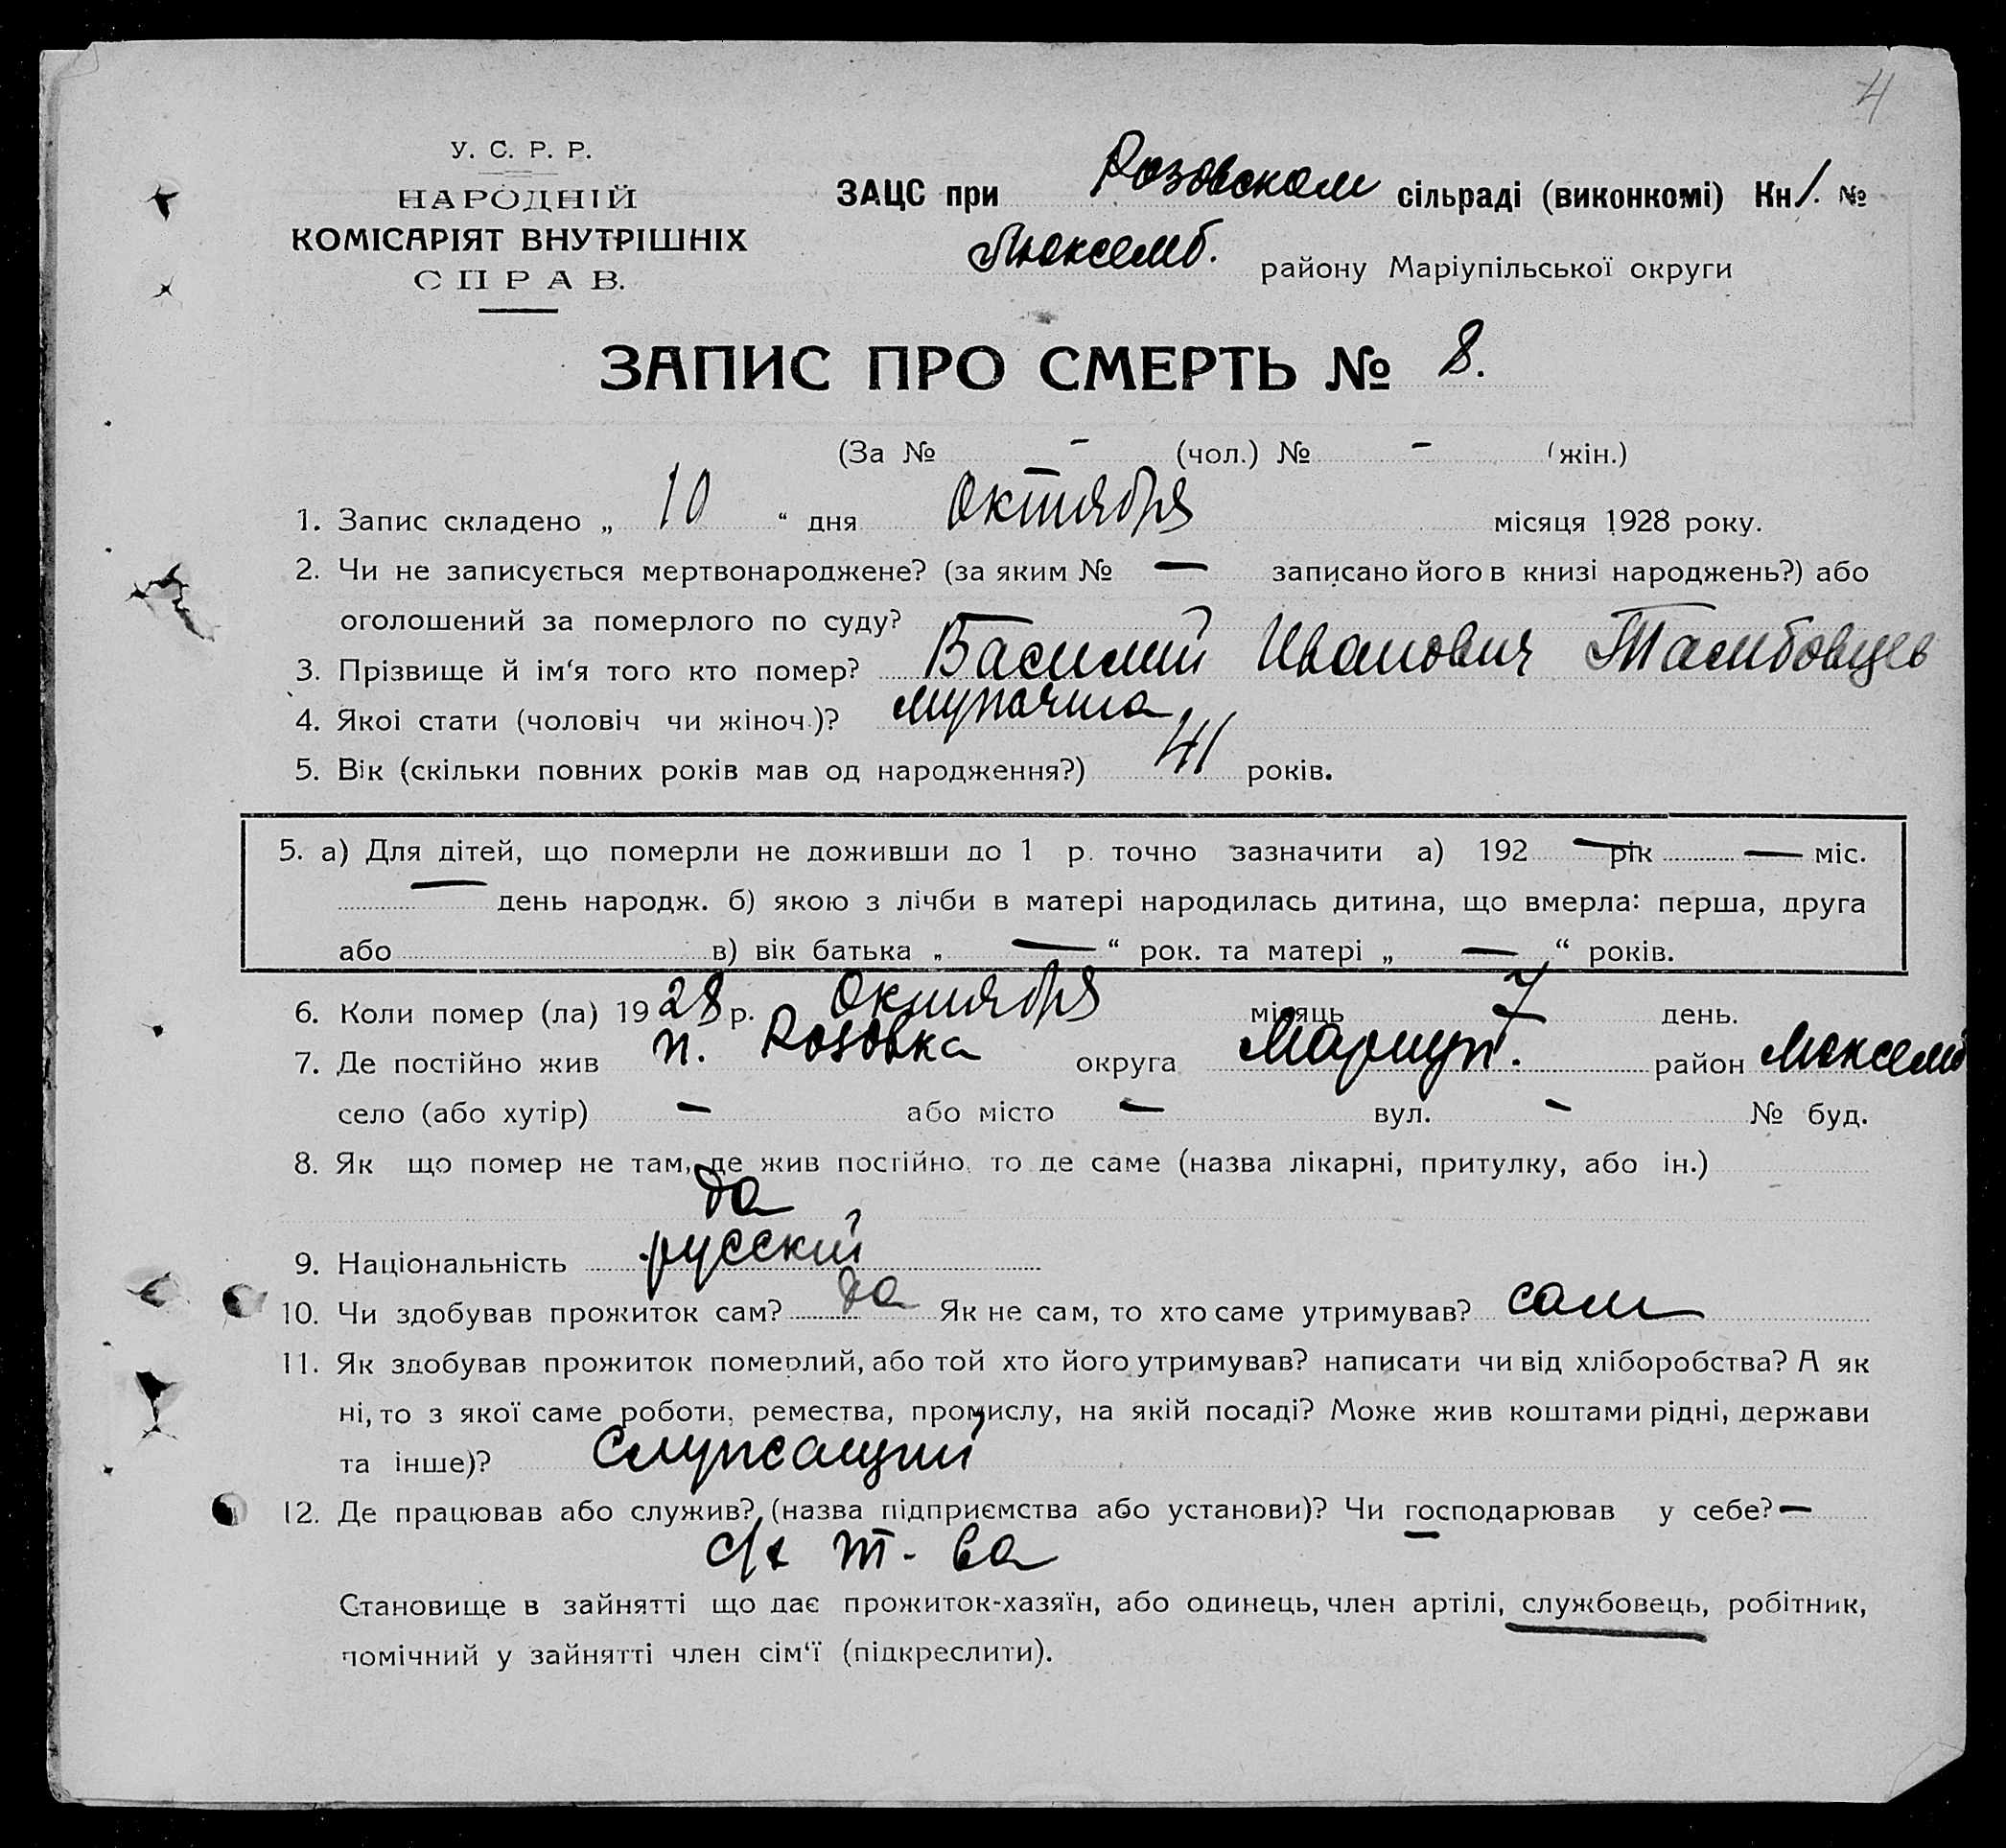 4
У. С. Р. Р.
НАРОДНІЙ
КОМІСАРІЯТ ВНУТРІШНІХ
СПРАВ.
ЗАЦС при Розовском сільраді (виконкомі) Кн 1. №
Люксемб. району Маріупільської округи
ЗАПИС ПРО СМЕРТЬ № 8.
(За № - (чол.) № - (жін.)
1. Запис складено „ 10 “ дня Октября місяця 1928 року.
2. Чи не записується мертвонароджене? (за яким № — записано його в книзі народжень?) або
оголошений за померлого по суду?
3. Прізвище й ім‘я того кто помер? Василий Иванович Тамбовцев
4. Якоі стати (чоловіч чи жіноч.)? мужчина
5. Вік (скільки повних років мав од народження?) 41 років.
5. а) Для дітей, що померли не доживши до 1 р. точно зазначити а) 192 — рік — міс.
— день народж. б) якою з лічби в матері народилась дитина, що вмерла: перша, друга
або в) вік батька „ — “ рок. та матері „ — “ років.
6. Коли помер (ла) 1928 р. Октября місяць 7 день.
7. Де постійно жив п. Розовка округа Мариуп. район Люксемб
село (або хутір) - або місто - вул. - № буд.
8. Як що помер не там, де жив постійно, то де саме (назва лікарні, притулку, або ін.)
да
9. Національність русский
10. Чи здобував прожиток сам? да Як не сам, то хто саме утримував? сам
11. Як здобував прожиток померлий, або той хто його утримував? написати чи від хліборобства? А як
ні, то з якої саме роботи, ремества, промислу, на якій посаді? Може жив коштами рідні, держави
та інше)? Служащий
12. Де працював або служив? (назва підприємства або установи)? Чи господарював у себе? —
с/х т-ва
Становище в зайнятті що дає прожиток-хазяїн, або одинець, член артілі, службовець, робітник,
помічний у зайнятті член сім‘ї (підкреслити).